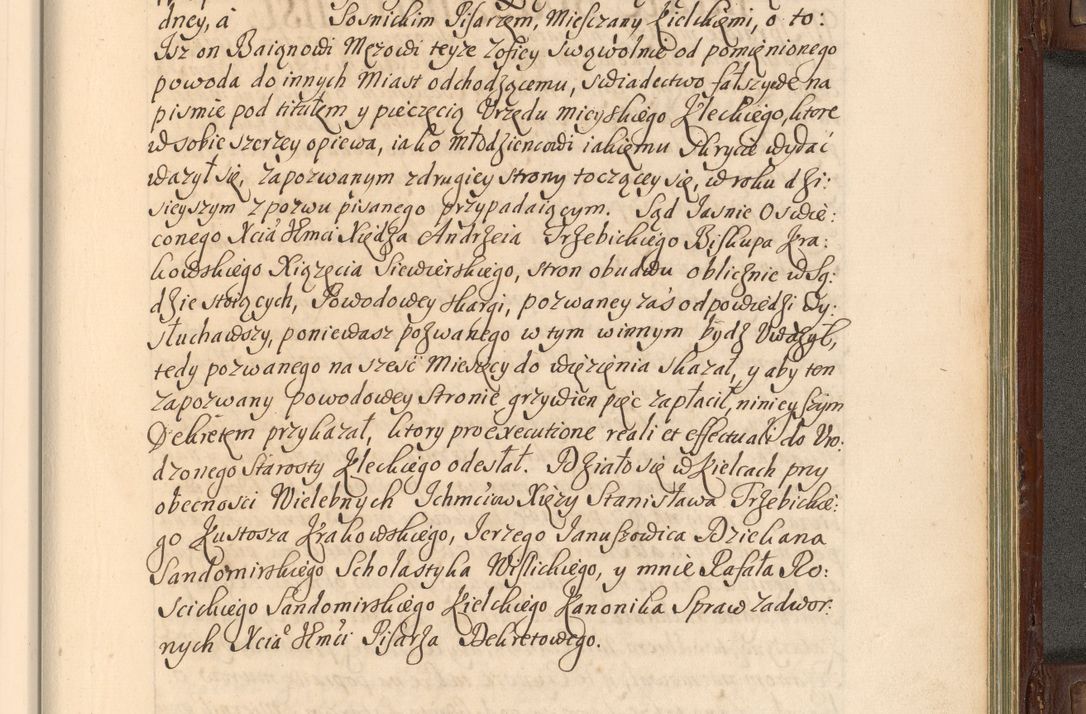 dney, á Sosnickim Pisarzem, Miesczany Kielckiemi, o to:
Isz on Baignowi Męzowi teyze Zofiey swąwolnie od pomięnionego
powoda do innych Miast odchodzącemu, swiadectwo fałszywe na
pismie pod titułem y pieczęcią Urzędu mieyskiego Kleckiego, ktore
w sobie szerzey opiewa, iako młodziencowi iakięmu skrycie wydać
wazył się, zapozwanym z drugiey strony toczącey się, w roku dzi:
sieyszym z pozwu pisanego przypadaiącym. Sąd Iasnie Oswie:
conego Xcia Jhmci Xiędza Andrzeia Trzebickiego Biskupa Kra:
kowskiego Xiązęcia Siewierskiego, stron obudwu oblicznie w Są:
dzie stoiących, Powodowey skargi, pozwaney zaś odpowiedzi wy:
słuchawszy, poniewasz pozwanego w tym winnym bydź Uważył,
tedy pozwanego na szesć Miesięcy do więzięnia skazał, y aby ten
zapozwany powodowey stronie grzywien pięc zapłacił, ninieyszym
Dekretem przykazał, ktory pro executione reali et effectuali do Uro:
dzonego Starosty Kleckiego odesłał. Działo się w Kielcach przy
obecnosci Wielebnych Ichmciow Xięzy Stanisława Trzebickie:
go Kustosza Krakowskiego, Ierzego Ianuszowica Dziekana
Sandomirskiego Scholastyka Wislickiego, y mnie Rafała Ro:
scickiego Sandomirskiego Kielckiego Kanonika Spraw zadwor:
nych Xcia Jhmci Pisarza Dekretowego.